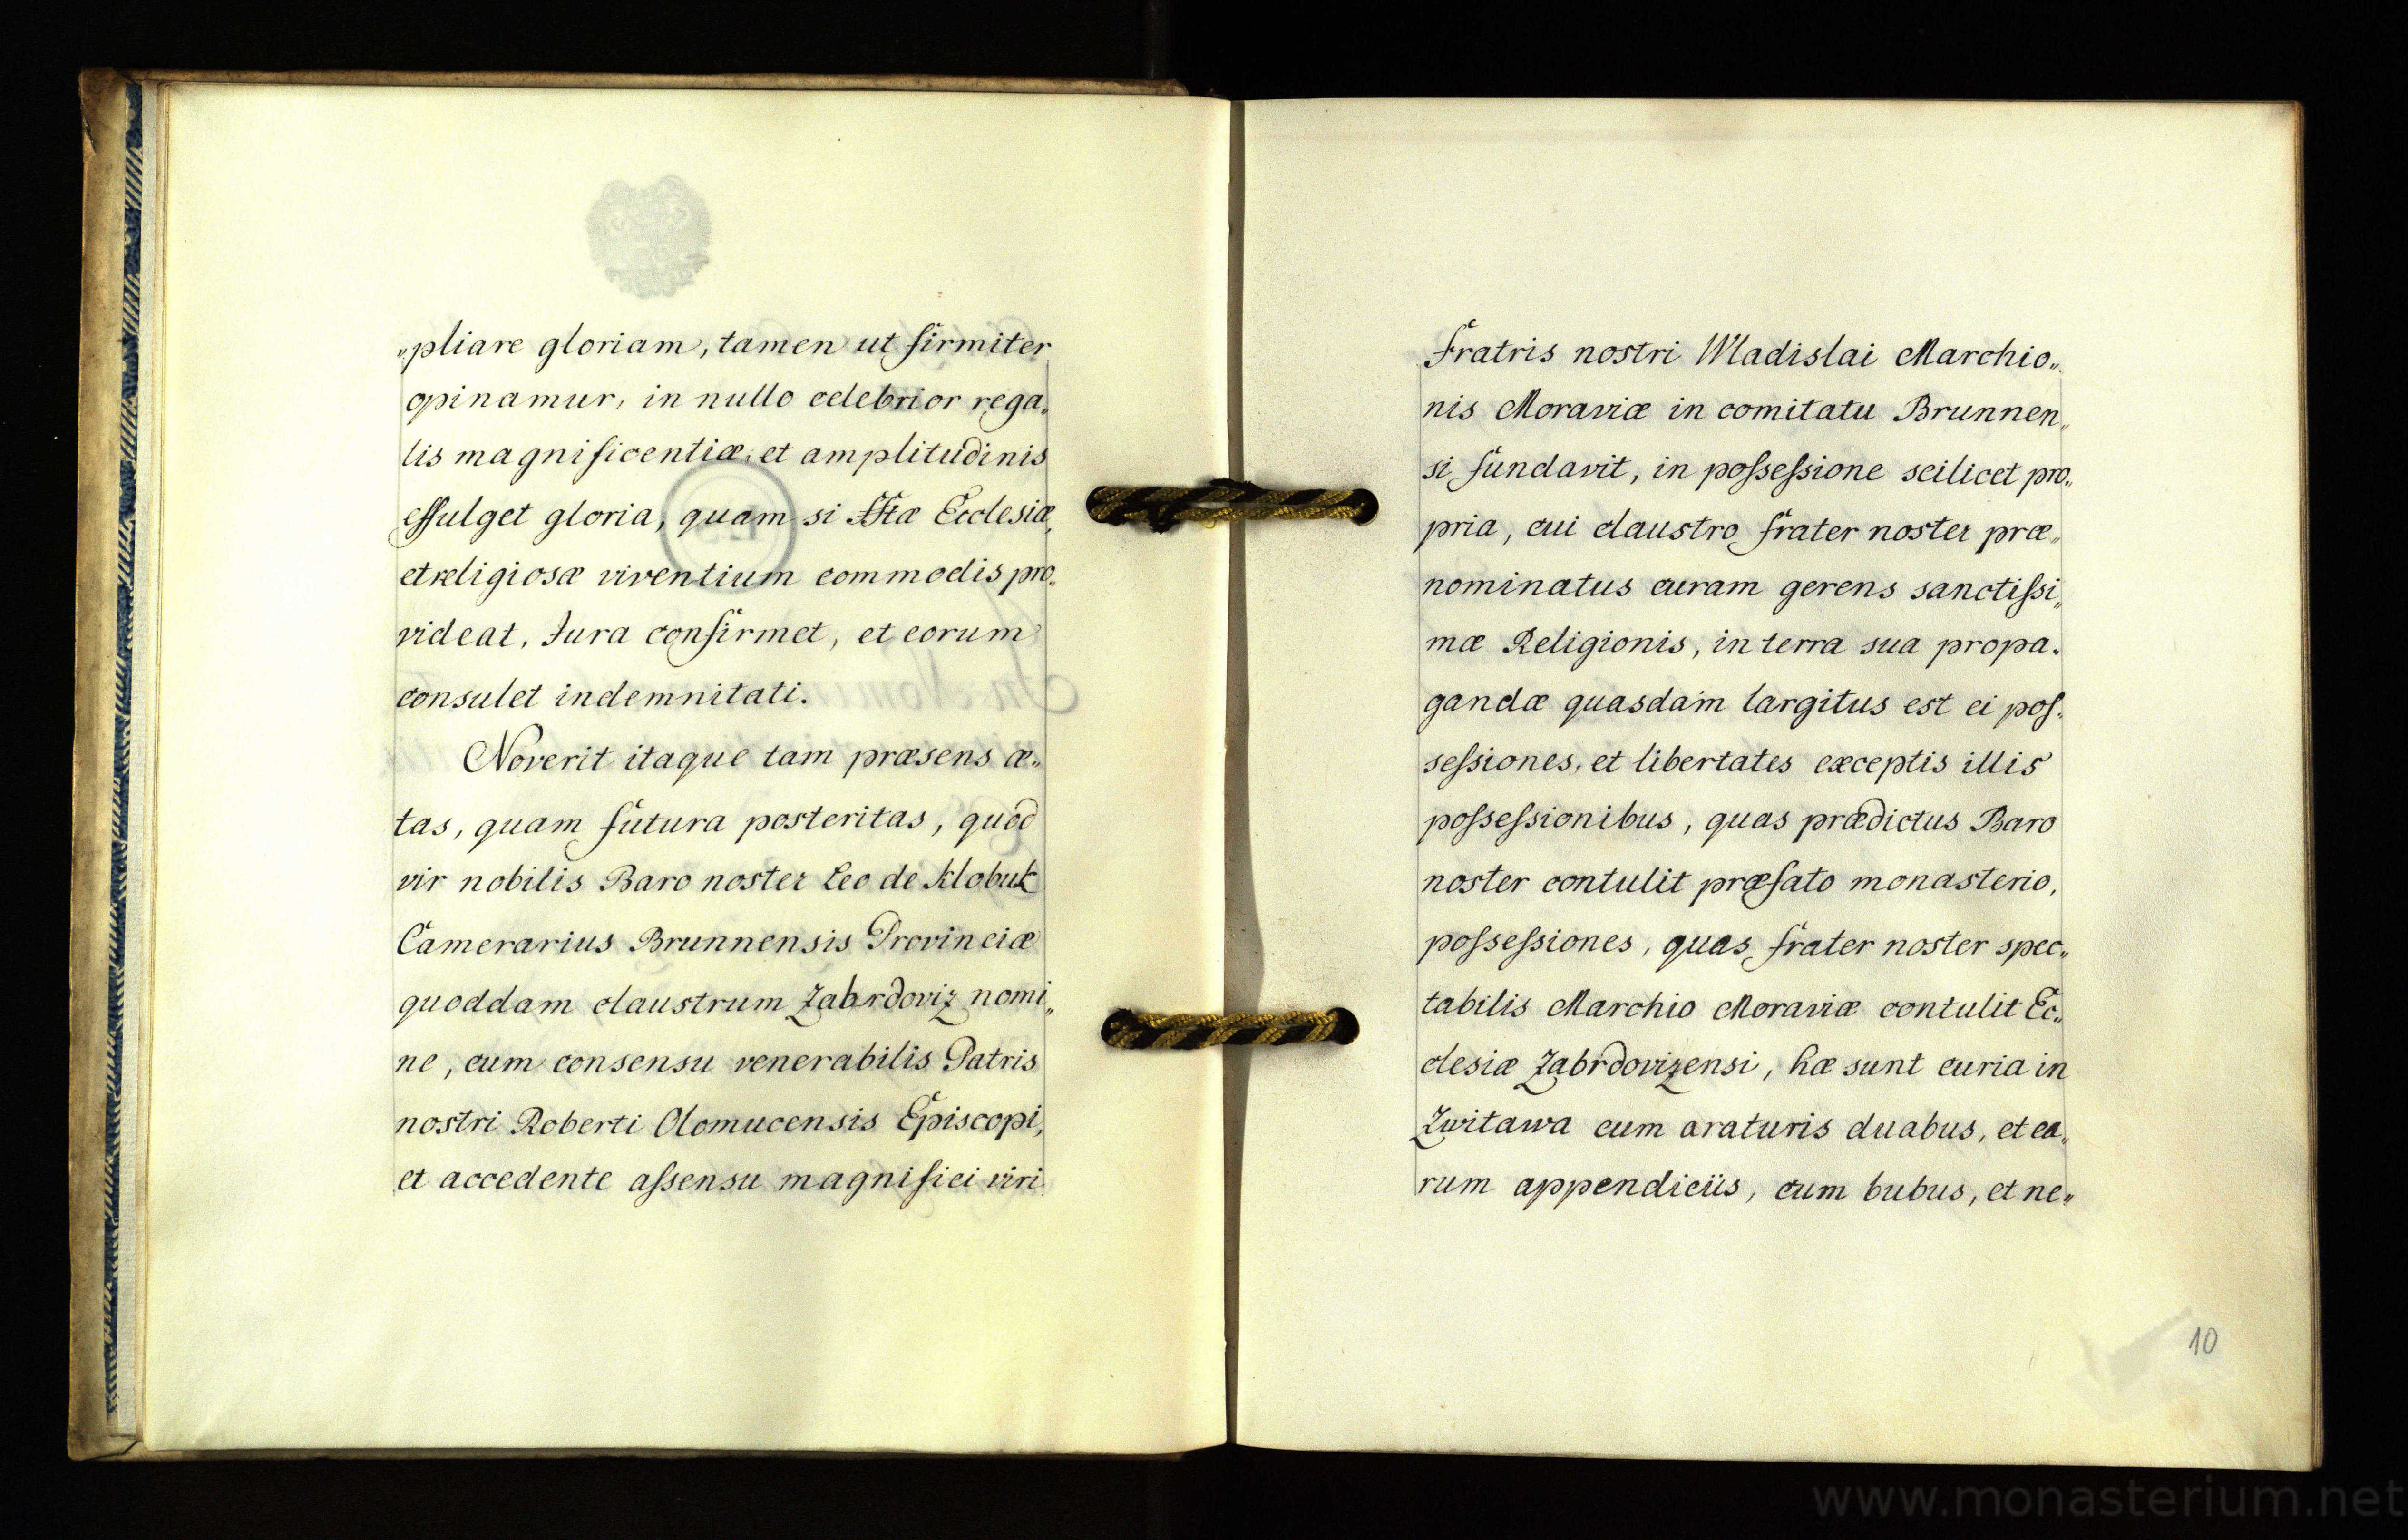 „pliare gloriam, tamen ut firmiter
opinamur, in nullo celebrior rega„
lis magnificentiæ, et amplitudinis
effulget gloria, quam si Ecclesiæ,
et religiosæ viventium commodis pro„
videat, Jura confirmet, et eorum
consulet indemnitati.
Noverit itaque tam præsens æ„
tas, quam futura posteritas, quod
vir nobilis Baro noster Leo de Klobuk
Camerarius Brunnensis Provinciæ
quoddam claustrum Zabrdoviz nomi„
ne, cum consensu venerabilis Patris
nostri Roberti Olomucensis Episcopi,
et accedente aſsensu magnifici viri
Fratris nostri Wladislai Marchio„
nis Moraviæ in comitatu Brunnen„
si fundavit, in poſseſsione scilicet pro„
pria, cui claustro frater noster præ„
nominatus curam gerens sanctiſsi„
mæ Religionis, in terra sua propa„
gandæ quasdam largitus est ei poſ„
seſsiones, et libertates exceptis illis
poſseſsionibus, quas prædictus Baro
noster contulit præfato monasterio,
poſseſsiones, quas frater noster spec„
tabilis Marchio Moraviæ contulit Ec„
clesiæ Zabrdovizensi, hæ sunt curia in
Zwitawa cum araturis duabus, et ea„
rum appendiciis, cum bubus, et ne„
10
www.monasterium.net